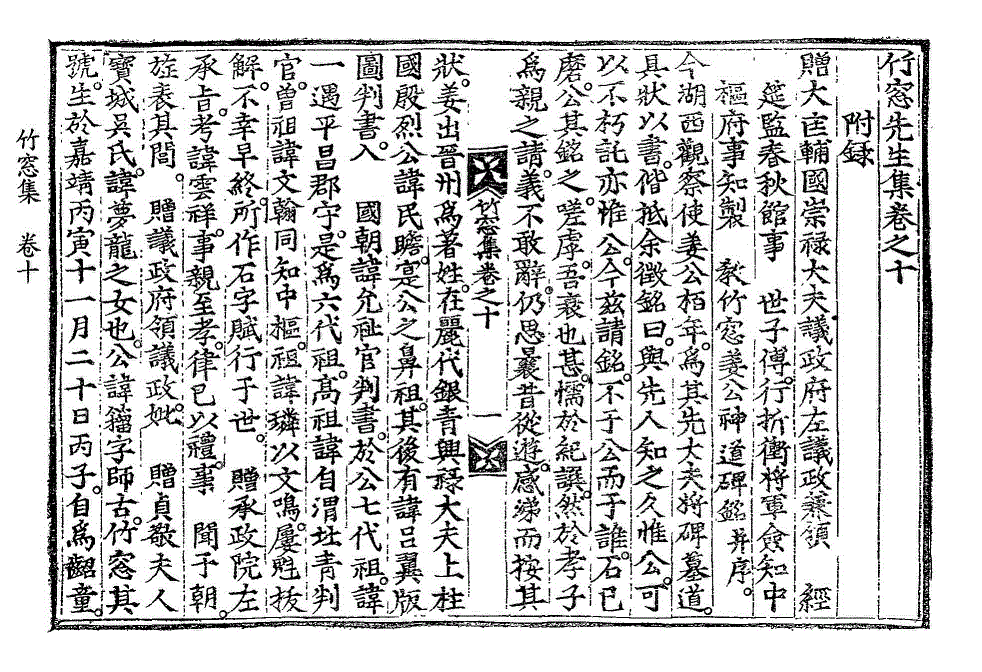 竹窓先生集卷之十
附錄
贈大匡輔國崇祿大夫議政府左議政兼領 經
筵監春秋館事 世子傅行折衝將軍僉知中
樞府事知製 敎竹窓姜公神道碑銘 幷序○
今湖西觀察使姜公栢年○爲其先大夫將碑墓道○
具狀以書○偕抵余徵銘曰○與先人知之久惟公○可
以不朽託亦惟公○今玆請銘○不于公而于誰○石已
磨○公其銘之○嗟虖○吾衰也甚○懦於紀譔○然於孝子
爲親之請○義不敢辭○仍思曩昔從遊○感涕而按其
竹窓集卷之十 一
狀○姜出晉州爲著姓○在麗代銀靑興祿大夫上柱
國殷烈公諱民瞻○寔公之鼻祖○其後有諱呂翼版
圖判書○入 國朝諱允祉官判書○於公七代祖○諱
一遇平昌郡守○是爲六代祖○高祖諱自渭社靑判
官○曾祖諱文翰同知中樞○祖諱璘以文鳴○屢魁拔
解○不幸早終○所作石字賦行于世○ 贈承政院左
承旨○考諱雲祥○事親至孝○律已以禮○事 聞于朝○
旌表其閭○ 贈議政府領議政○妣 贈貞敬夫人
寶城吳氏○諱夢龍之女也○公諱籀字師古○竹窓其
號○生於嘉靖丙寅十一月二十日丙子○自爲齠童○
竹窓集 卷十